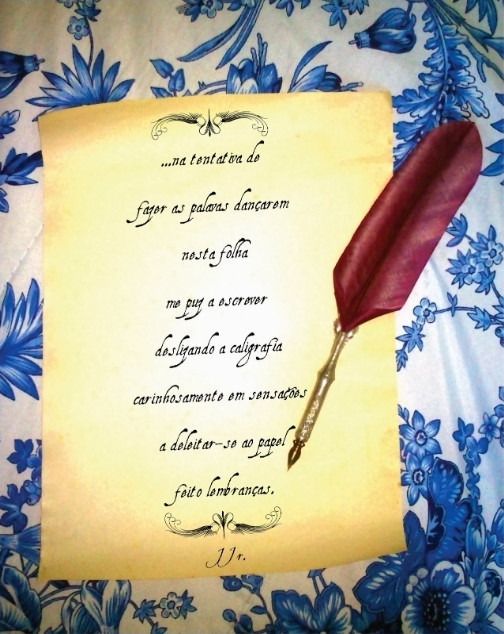 ...na tentativa de
fazer as palavas dançarem
nesta folha
me puz a escrever
deslizando a caligrafia
carinhosamente em sensações
a deleitar-se ao papel
feito lembranças.
JJr.